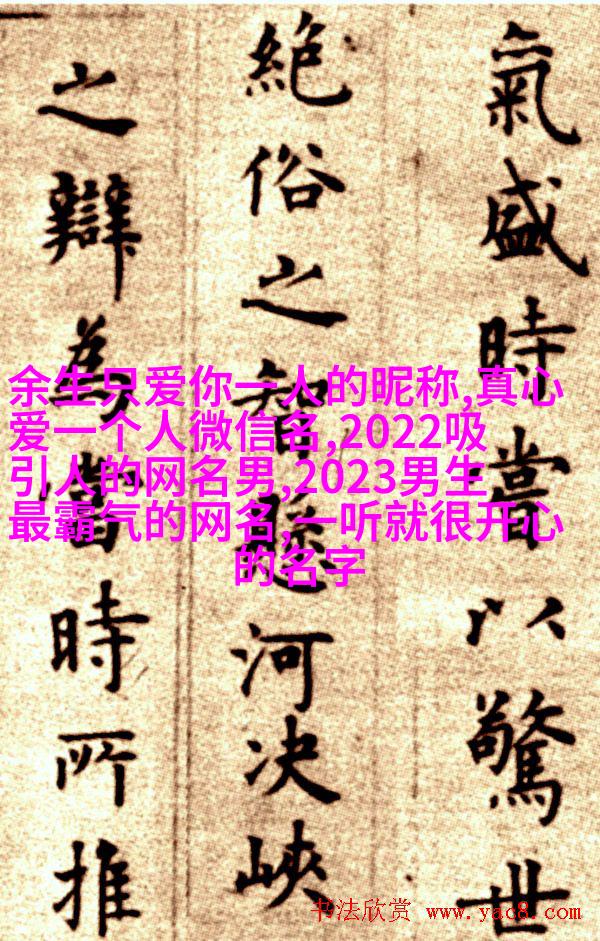 氣盛時嘗以驚世
絕俗之智懸河决峽
之辯為當時所推
余生只爱你一人的昵称,真心
爱一个人微信名,2022吸
引人的网名男,2023男生
最霸气的网名,一听就很开心
的名字
书法欣赏 www.yac8.com